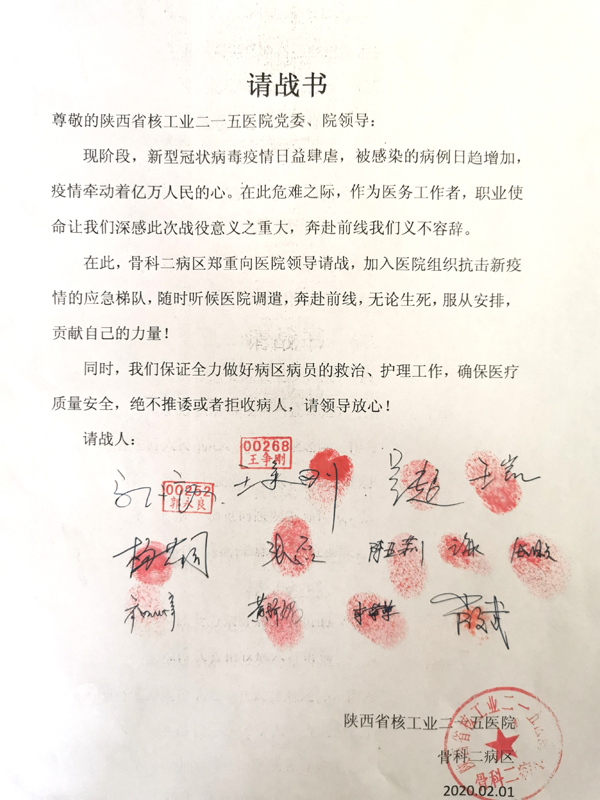 请战书
尊敬的陕西省核工业二一五医院党委、院领导：
现阶段，新型冠状病毒疫情日益肆虐，被感染的病例日趋增加，
疫情牵动着亿万人民的心。在此危难之际，作为医务工作者，职业使
命让我们深感此次战役意义之重大，奔赴前线我们义不容辞。
在此，骨科二病区郑重向医院领导请战，加入医院组织抗击新疫
情的应急梯队，随时听候医院调遣，奔赴前线，无论生死，服从安排，
贡献自己的力量！
同时，我们保证全力做好病区病员的救治、护理工作，确保医疗
质量安全，绝不推诿或者拒收病人，请领导放心！
请战人：
00268
王争刚
00252
郭永良
王争刚 吴超 王凯
陕西省核工业二一五医院
骨科二病区
2020.02.01
陕西省核工业二一五医院
骨科二病区